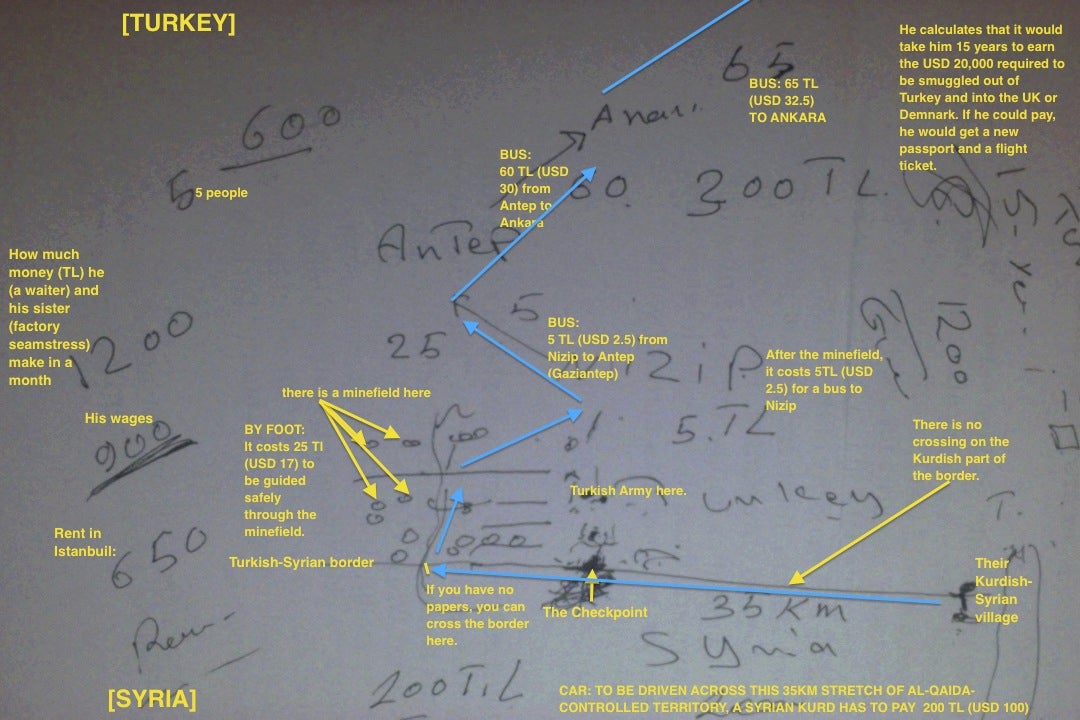 [TURKEY]
He calculates that it would
take him 15 years to earn
the USD 20,000 required to
be smuggled out of
Turkey and into the UK or
Demnark. If he could pay,
he would get a new
passport and a flight
ticket.
65
BUS: 65 TL
(USD 32.5)
TO ANKARA
600
5
5 people
BUS:
60 TL (USD
30) from
Antep to
Ankara
60.
300 TL.
15-
Antep
How much
money (TL) he
(a waiter) and
his sister
(factory
seamstress)
make in a
month
1200
1200
5
25
BUS:
5 TL (USD 2.5) from
Nizip to Antep
(Gaziantep)
After the minefield,
it costs 5TL (USD
2.5) for a bus to
Nizip
5.TL
there is a minefield here
His wages
900
BY FOOT:
It costs 25 Tl
(USD 17) to
be guided
safely
through the
minefield.
There is no
crossing on the
Kurdish part of
the border.
Turkish Army here.
Rent in
Istanbuil:
650
Turkish-Syrian border
If you have no
papers, you can
cross the border
here.
The Checkpoint
Their
Kurdish-
Syrian
village
35 Km
Syria
200 TiL
[SYRIA]
CAR: TO BE DRIVEN ACROSS THIS 35KM STRETCH OF AL-QAIDA-
CONTROLLED TERRITORY, A SYRIAN KURD HAS TO PAY  200 TL (USD 100)